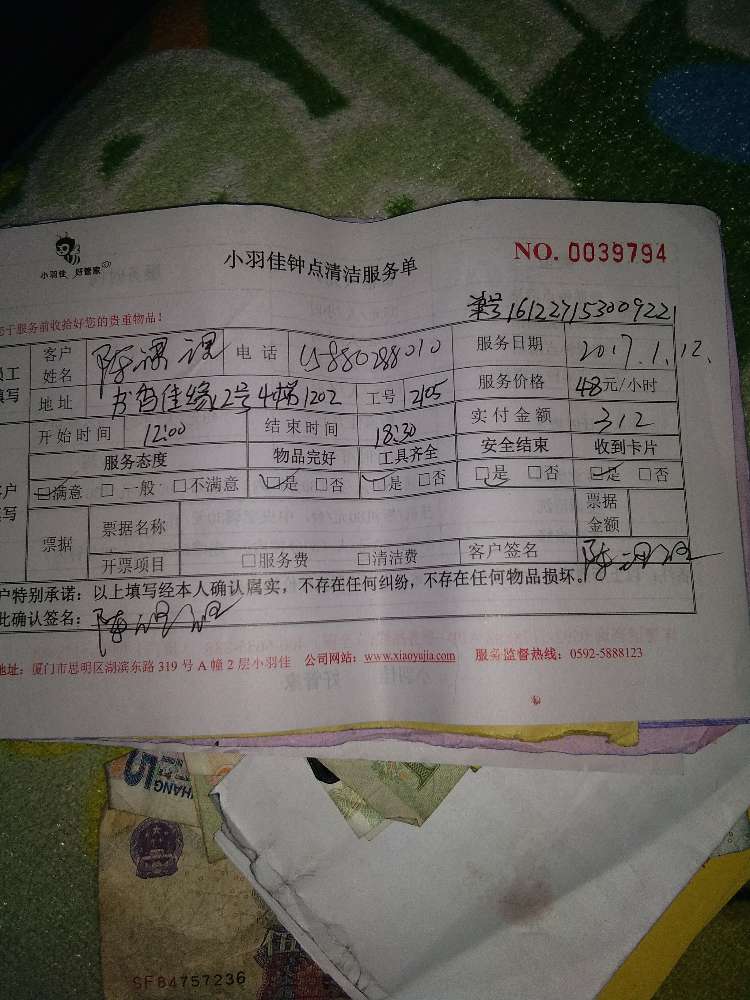 小羽佳 好管家
小羽佳钟点清洁服务单
NO. 0039794
于服务前收拾好您的贵重物品！
161227153009221
客户姓名 陈 电话 15880288010 服务日期 2017.1.12.
地址 佳缘12号4梯1202 工号 2105 服务价格 48元/小时
开始时间 12:00 结束时间 18:30 实付金额 312
服务态度 物品完好 工具齐全 安全结束 收到卡片
满意 一般 不满意 是 否 是 否 是 否 是 否
票据 票据名称 票据金额
开票项目 服务费 清洁费 客户签名 陈
户特别承诺：以上填写经本人确认属实，不存在任何纠纷，不存在任何物品损坏。
此确认签名： 陈
地址：厦门市思明区湖滨东路 319 号 A 幢 2 层小羽佳 公司网站：www.xiaoyujia.com 服务监督热线：0592-5888123
SF84757236